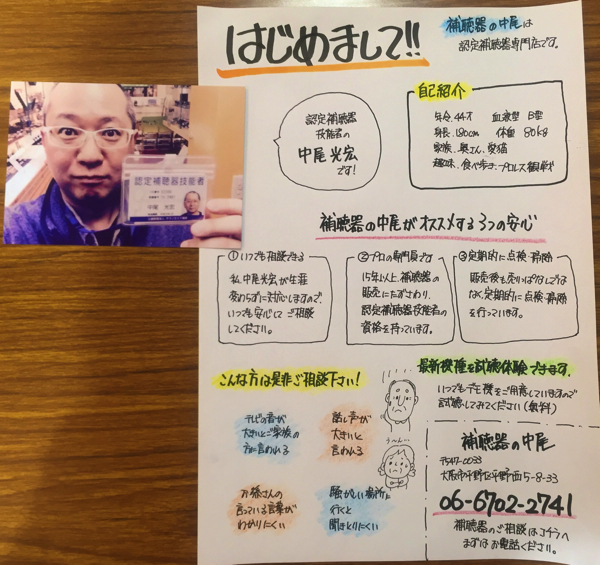 はじめまして!!
補聴器の中尾は
認定補聴器専門店です。
認定補聴器技能者
中尾 光宏
認定補聴器
技能者の
中尾 光宏
です!
自己紹介
年令、44才 血液型 B型
身長、180cm 体重 80kg
家族、奥さん、愛猫
趣味、食べ歩き、プロレス観戦
補聴器の中尾がオススメする3つの安心
①いつでも相談できる
私 中尾光宏が生涯
変わらずに対応しますので、
いつでも安心してご相談
してください。
②プロの専門員です
15年以上、補聴器の
販売にたずさわり、
認定補聴器技能者の
資格を持っています。
③定期的に点検・掃除
販売後も売りっぱなしでは
なく、定期的に点検・掃除
を行っています。
こんな方は是非ご相談下さい!
テレビの音が
大きいとご家族の
方に言われる
話し声が
大きいと
言われる
お孫さんの
言っている言葉が
わかりにくい
騒がしい場所に
行くと
聞きとりにくい
うーん…
最新機種を試聴体験できます。
いつでもデモ機をご用意していますので
試聴してみてください(無料)
補聴器の中尾
〒547-0033
大阪市平野区平野西5-8-33
06-6702-2741
補聴器のご相談はコチラへ
まずはお電話ください。